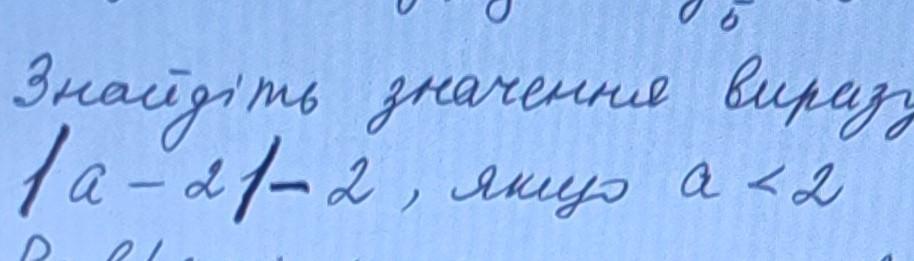 Знайдіть значення виразу
|a - 2| - 2, якщо a < 2